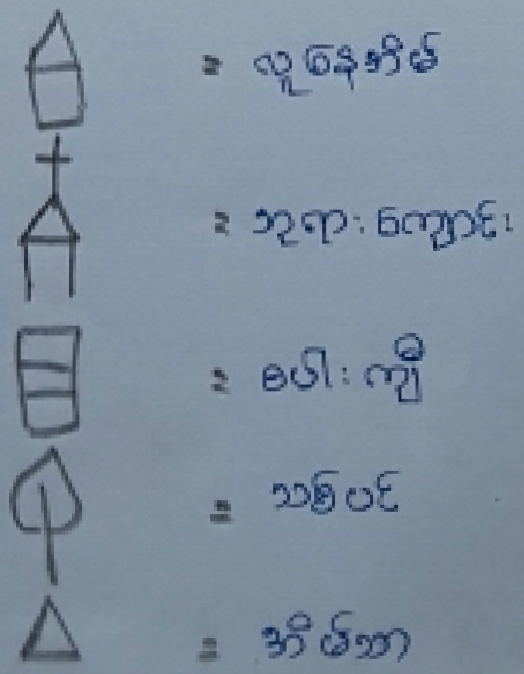 = လူနေအိမ်
= ဘုရားကျောင်း
= စပါးကျီ
= သစ်ပင်
= အိမ်သာ